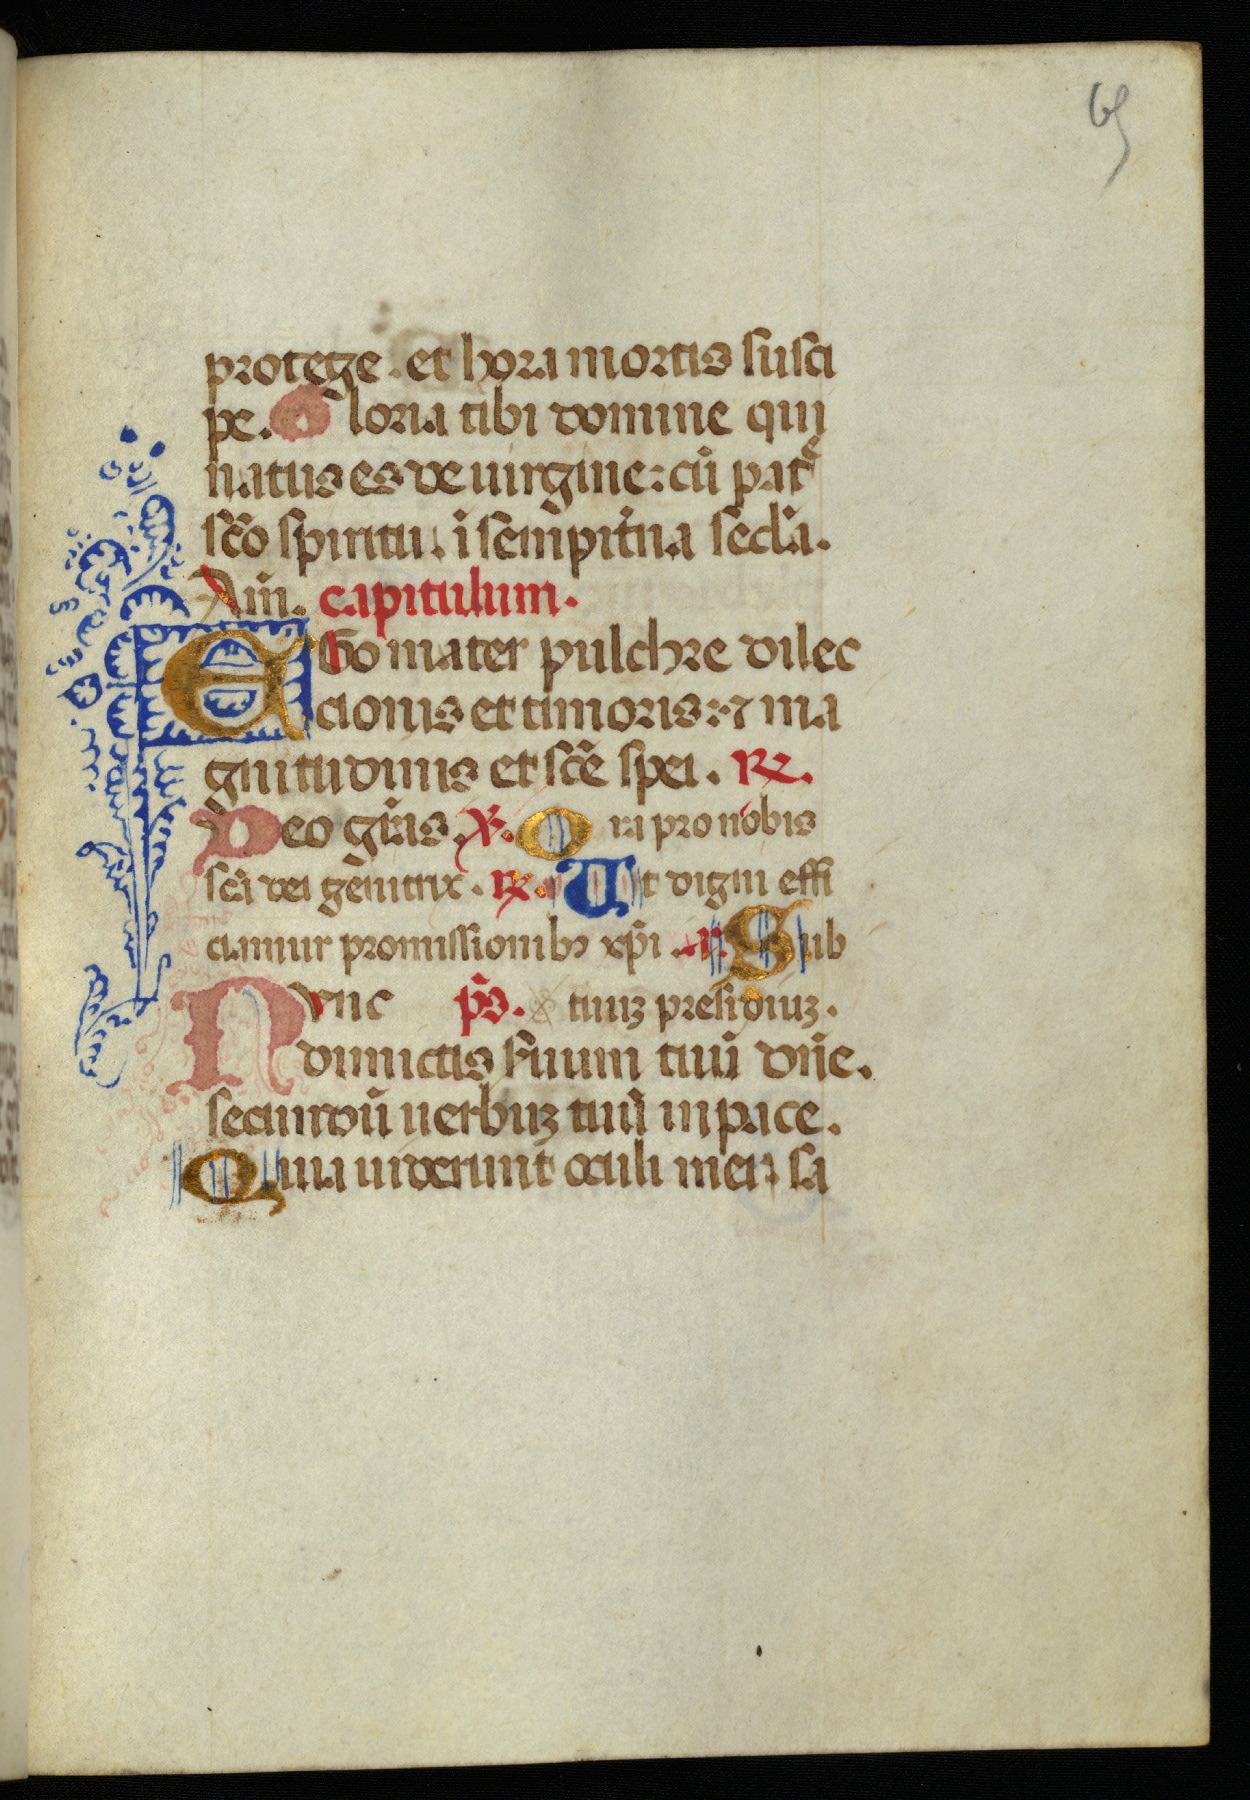 65
protege. et hora mortis susci
pe. Gloria tibi domine qui
natus es de uirgine: cū patͤ
scō spiritu. ī sempit̄na secl̄a.
Am̄. capitulum.
EGo mater pulchre dilec
cionis et timoris: ⁊ ma
gnitudinis et scē spei. ℞.
Deo gr̄as. ℣. Ora pro nobis
scā dei genitrix. ℞. Ut digni effi
ciamur promissionibꝫ xp̄i. Sub
Nvnc p̄s. tuuꝫ presidiuꝫ.
dimictis s̄uum tuū dn̄e.
secundū uerbuꝫ tuū in pace.
Quia uiderunt oculi mei sa